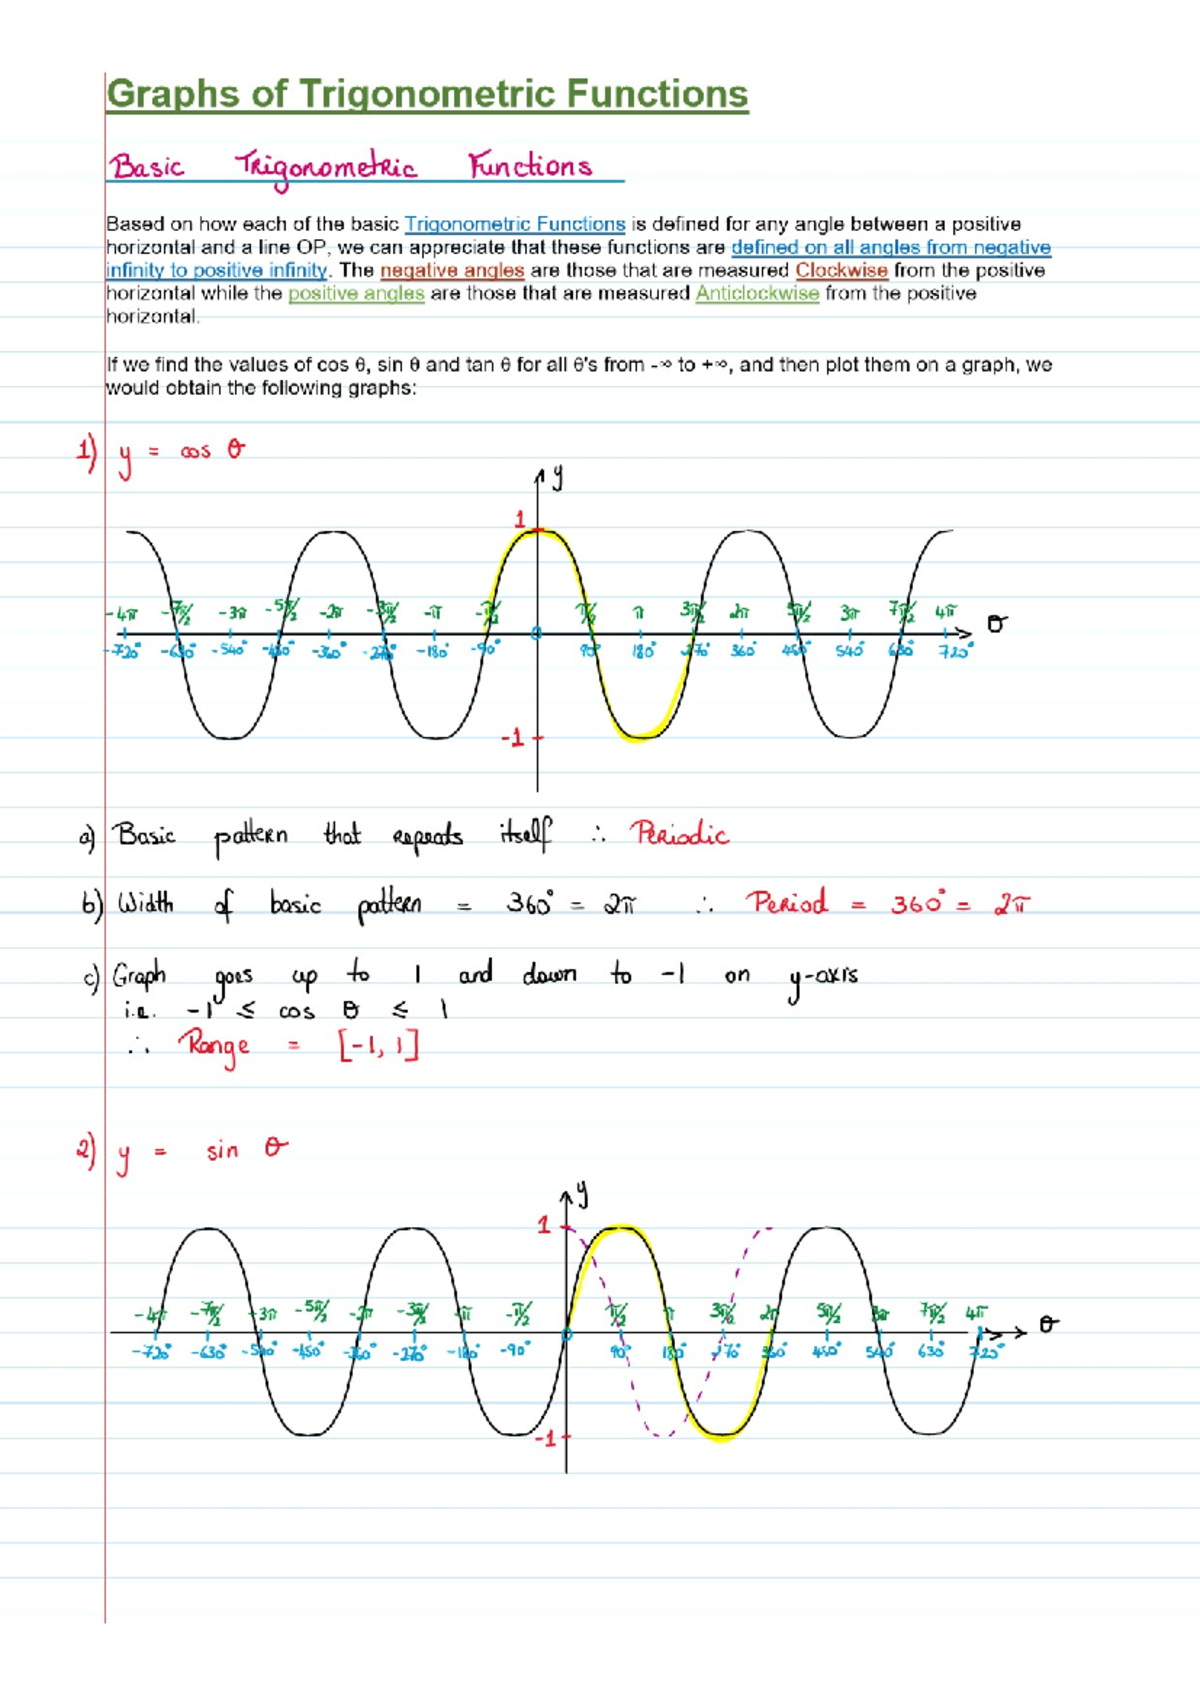 Graphs of Trigonometric Functions
Basic Trigonometric Functions
Based on how each of the basic Trigonometric Functions is defined for any angle between a positive
horizontal and a line OP, we can appreciate that these functions are defined on all angles from negative
infinity to positive infinity. The negative angles are those that are measured Clockwise from the positive
horizontal while the positive angles are those that are measured Anticlockwise from the positive
horizontal.
If we find the values of cos θ, sin θ and tan θ for all θ's from -∞ to +∞, and then plot them on a graph, we
would obtain the following graphs:
1) y = cos θ
y
1
-4π -7π/2 -3π -5π/2 -2π -3π/2 -π -π/2 π/2 π 3π/2 2π 5π/2 3π 7π/2 4π θ
-720° -630° -540° -450° -360° -270° -180° -90° 0 90° 180° 270° 360° 450° 540° 630° 720°
-1
a) Basic pattern that repeats itself ∴ Periodic
b) Width of basic pattern = 360° = 2π ∴ Period = 360° = 2π
c) Graph goes up to 1 and down to -1 on y-axis
i.e. -1 ≤ cos θ ≤ 1
∴ Range = [-1, 1]
2) y = sin θ
y
1
-4π -7π/2 -3π -5π/2 -2π -3π/2 -π -π/2 π/2 π 3π/2 2π 5π/2 3π 7π/2 4π θ
-720° -630° -540° -450° -360° -270° -180° -90° 0 90° 180° 270° 360° 450° 540° 630° 720°
-1